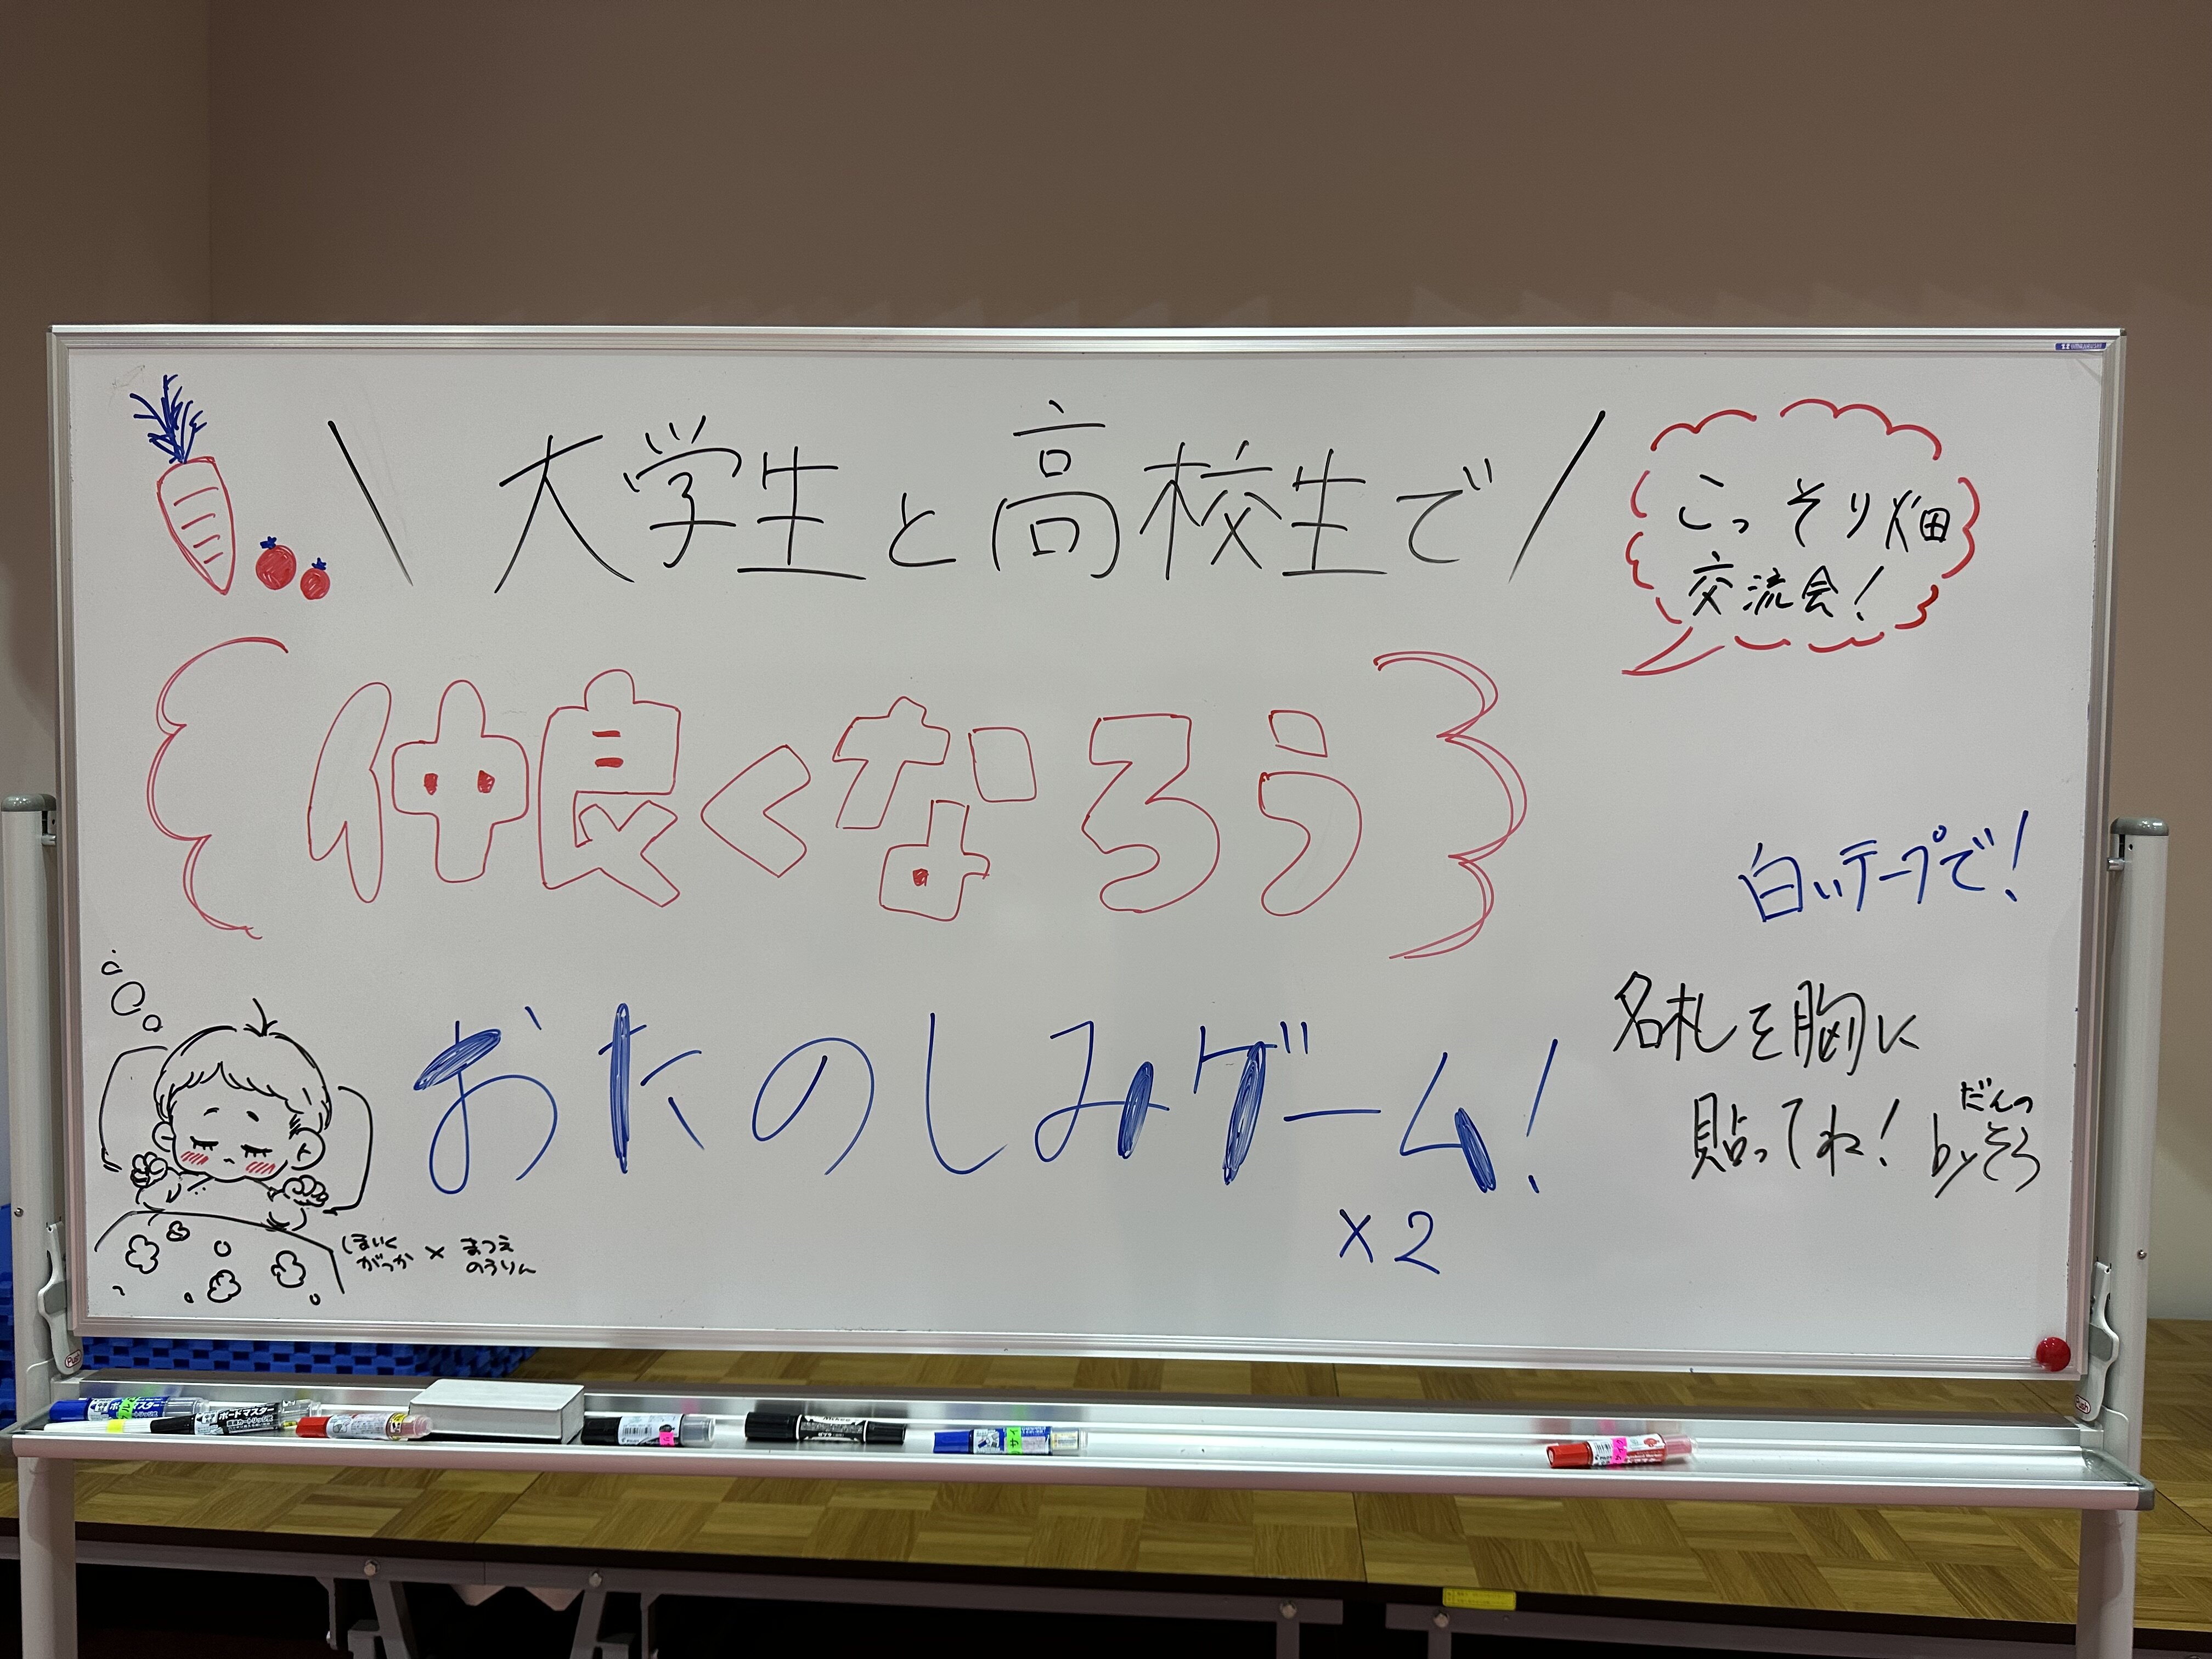 \ 大学生と高校生で /
こっそり畑
交流会！
仲良くなろう
白いテープで！
おたのしみゲーム！
×2
名札を胸に
貼ってね！ by だんつ
そら
ほいく
がっか × まつえ
のうりん
ボードマスター
Push
Push